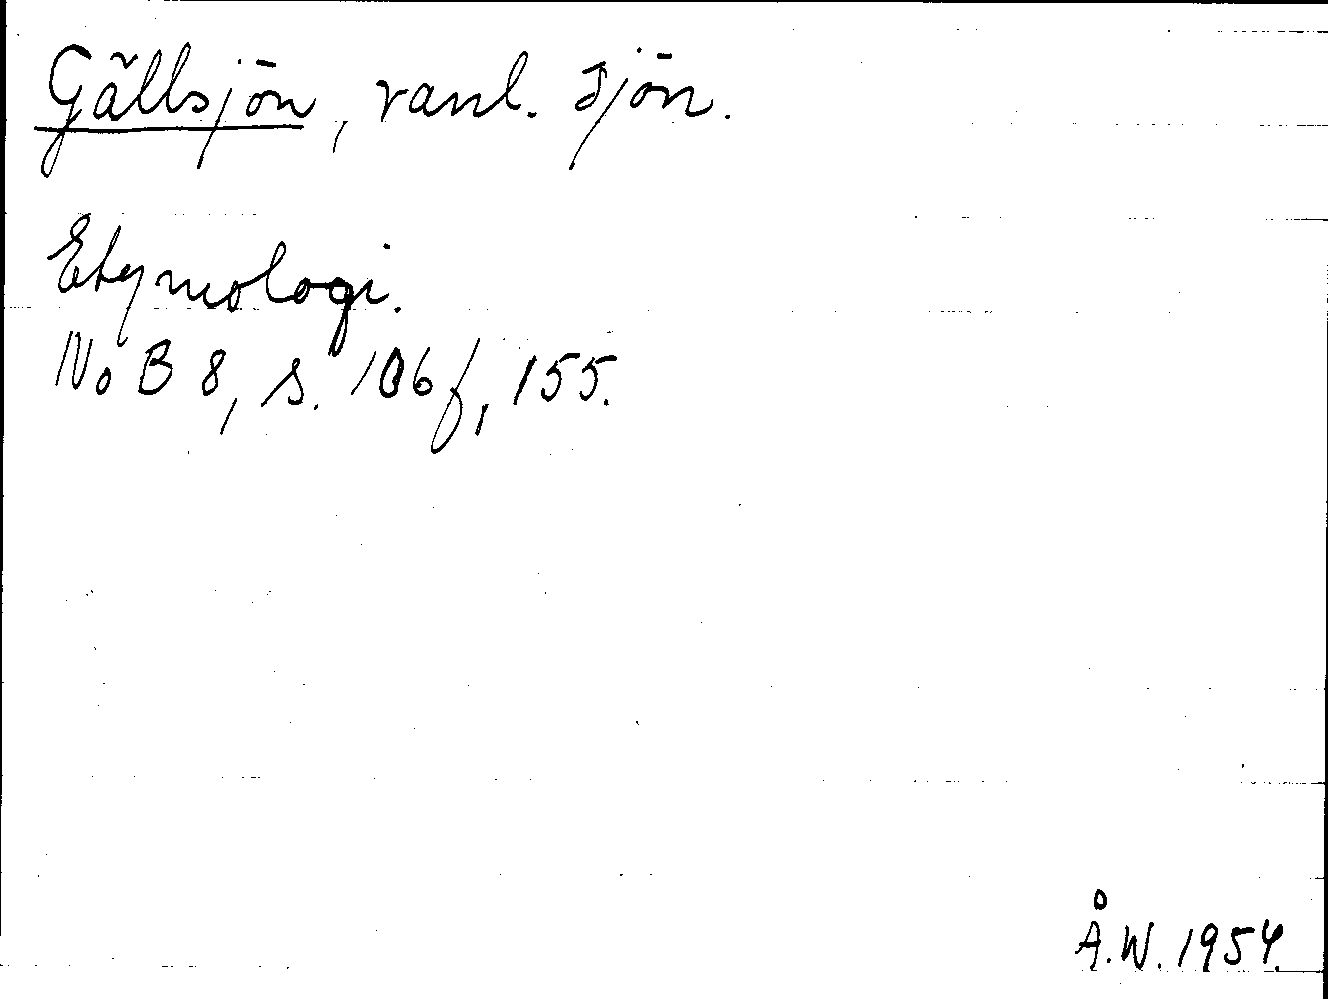 Gällsjön, vanl. Sjön.
Etymologi.
NoB 8, s. 106 f, 155.
Å.W. 1954.